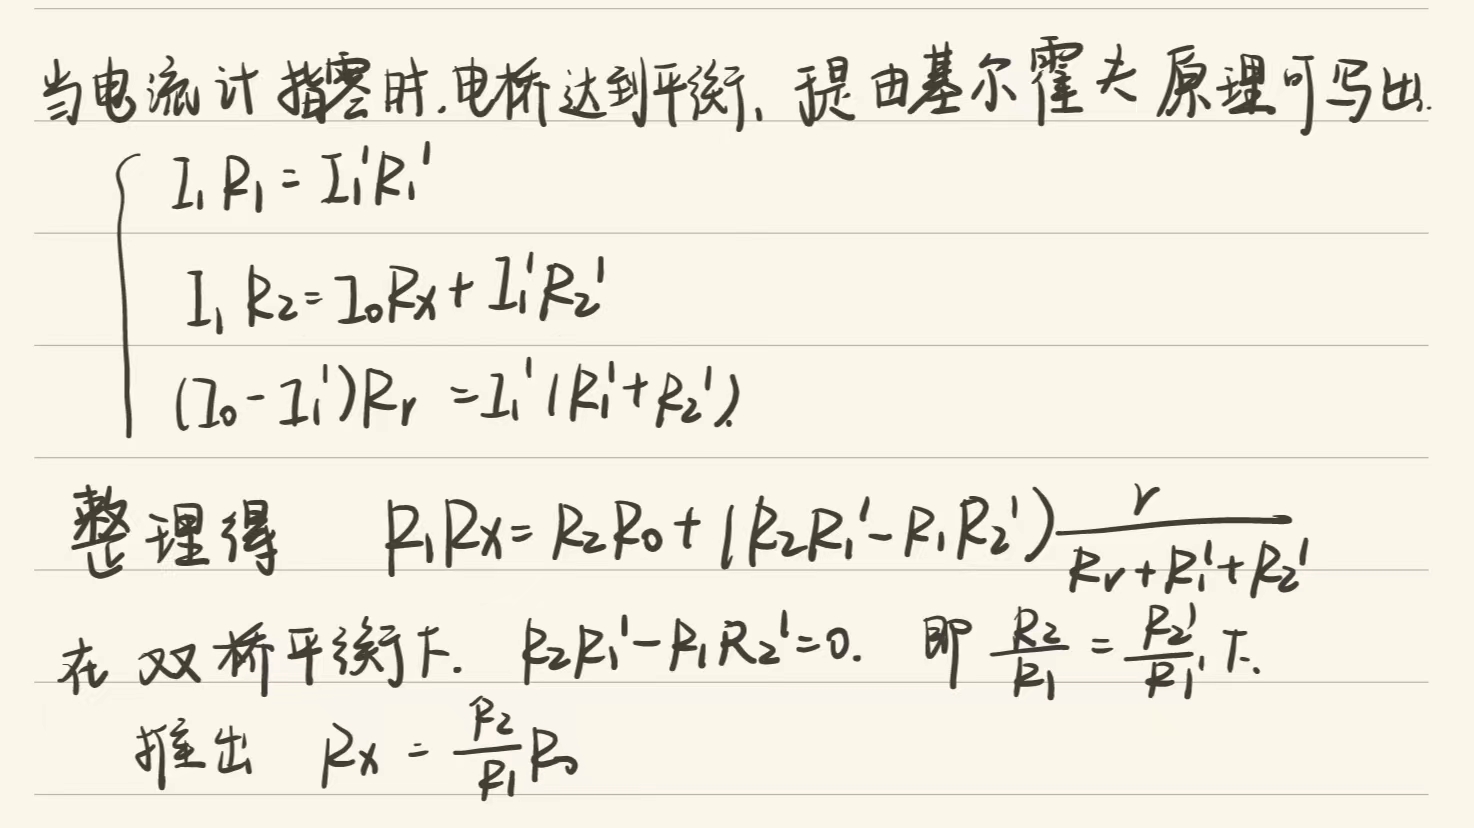 当电流计指零时.电桥达到平衡、于是由基尔霍夫原理可写出.
I₁R₁=I₁'R₁'
I₁R₂=I₀Rx+I₁'R₂'
(I₀-I₁')Rr=I₁'(R₁'+R₂').
整理得 R₁Rx=R₂R₀+(R₂R₁'-R₁R₂')r/(Rr+R₁'+R₂')
在双桥平衡下. R₂R₁'-R₁R₂'=0. 即 R₂/R₁=R₂'/R₁'下.
推出 Rx=R₂/R₁R₀